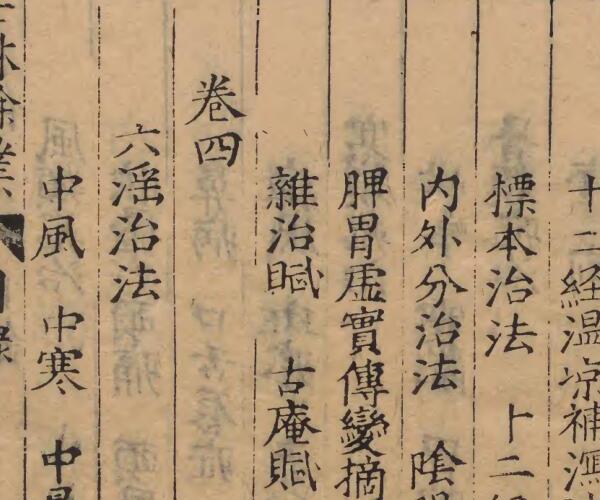 十二經温凉補瀉
標本治法 十二經
内外分治法 陰陽
脾胃虛實傳變摘
雜治賦 古庵賦
卷四
六淫治法
中風 中寒 中暑
士林餘業 目錄